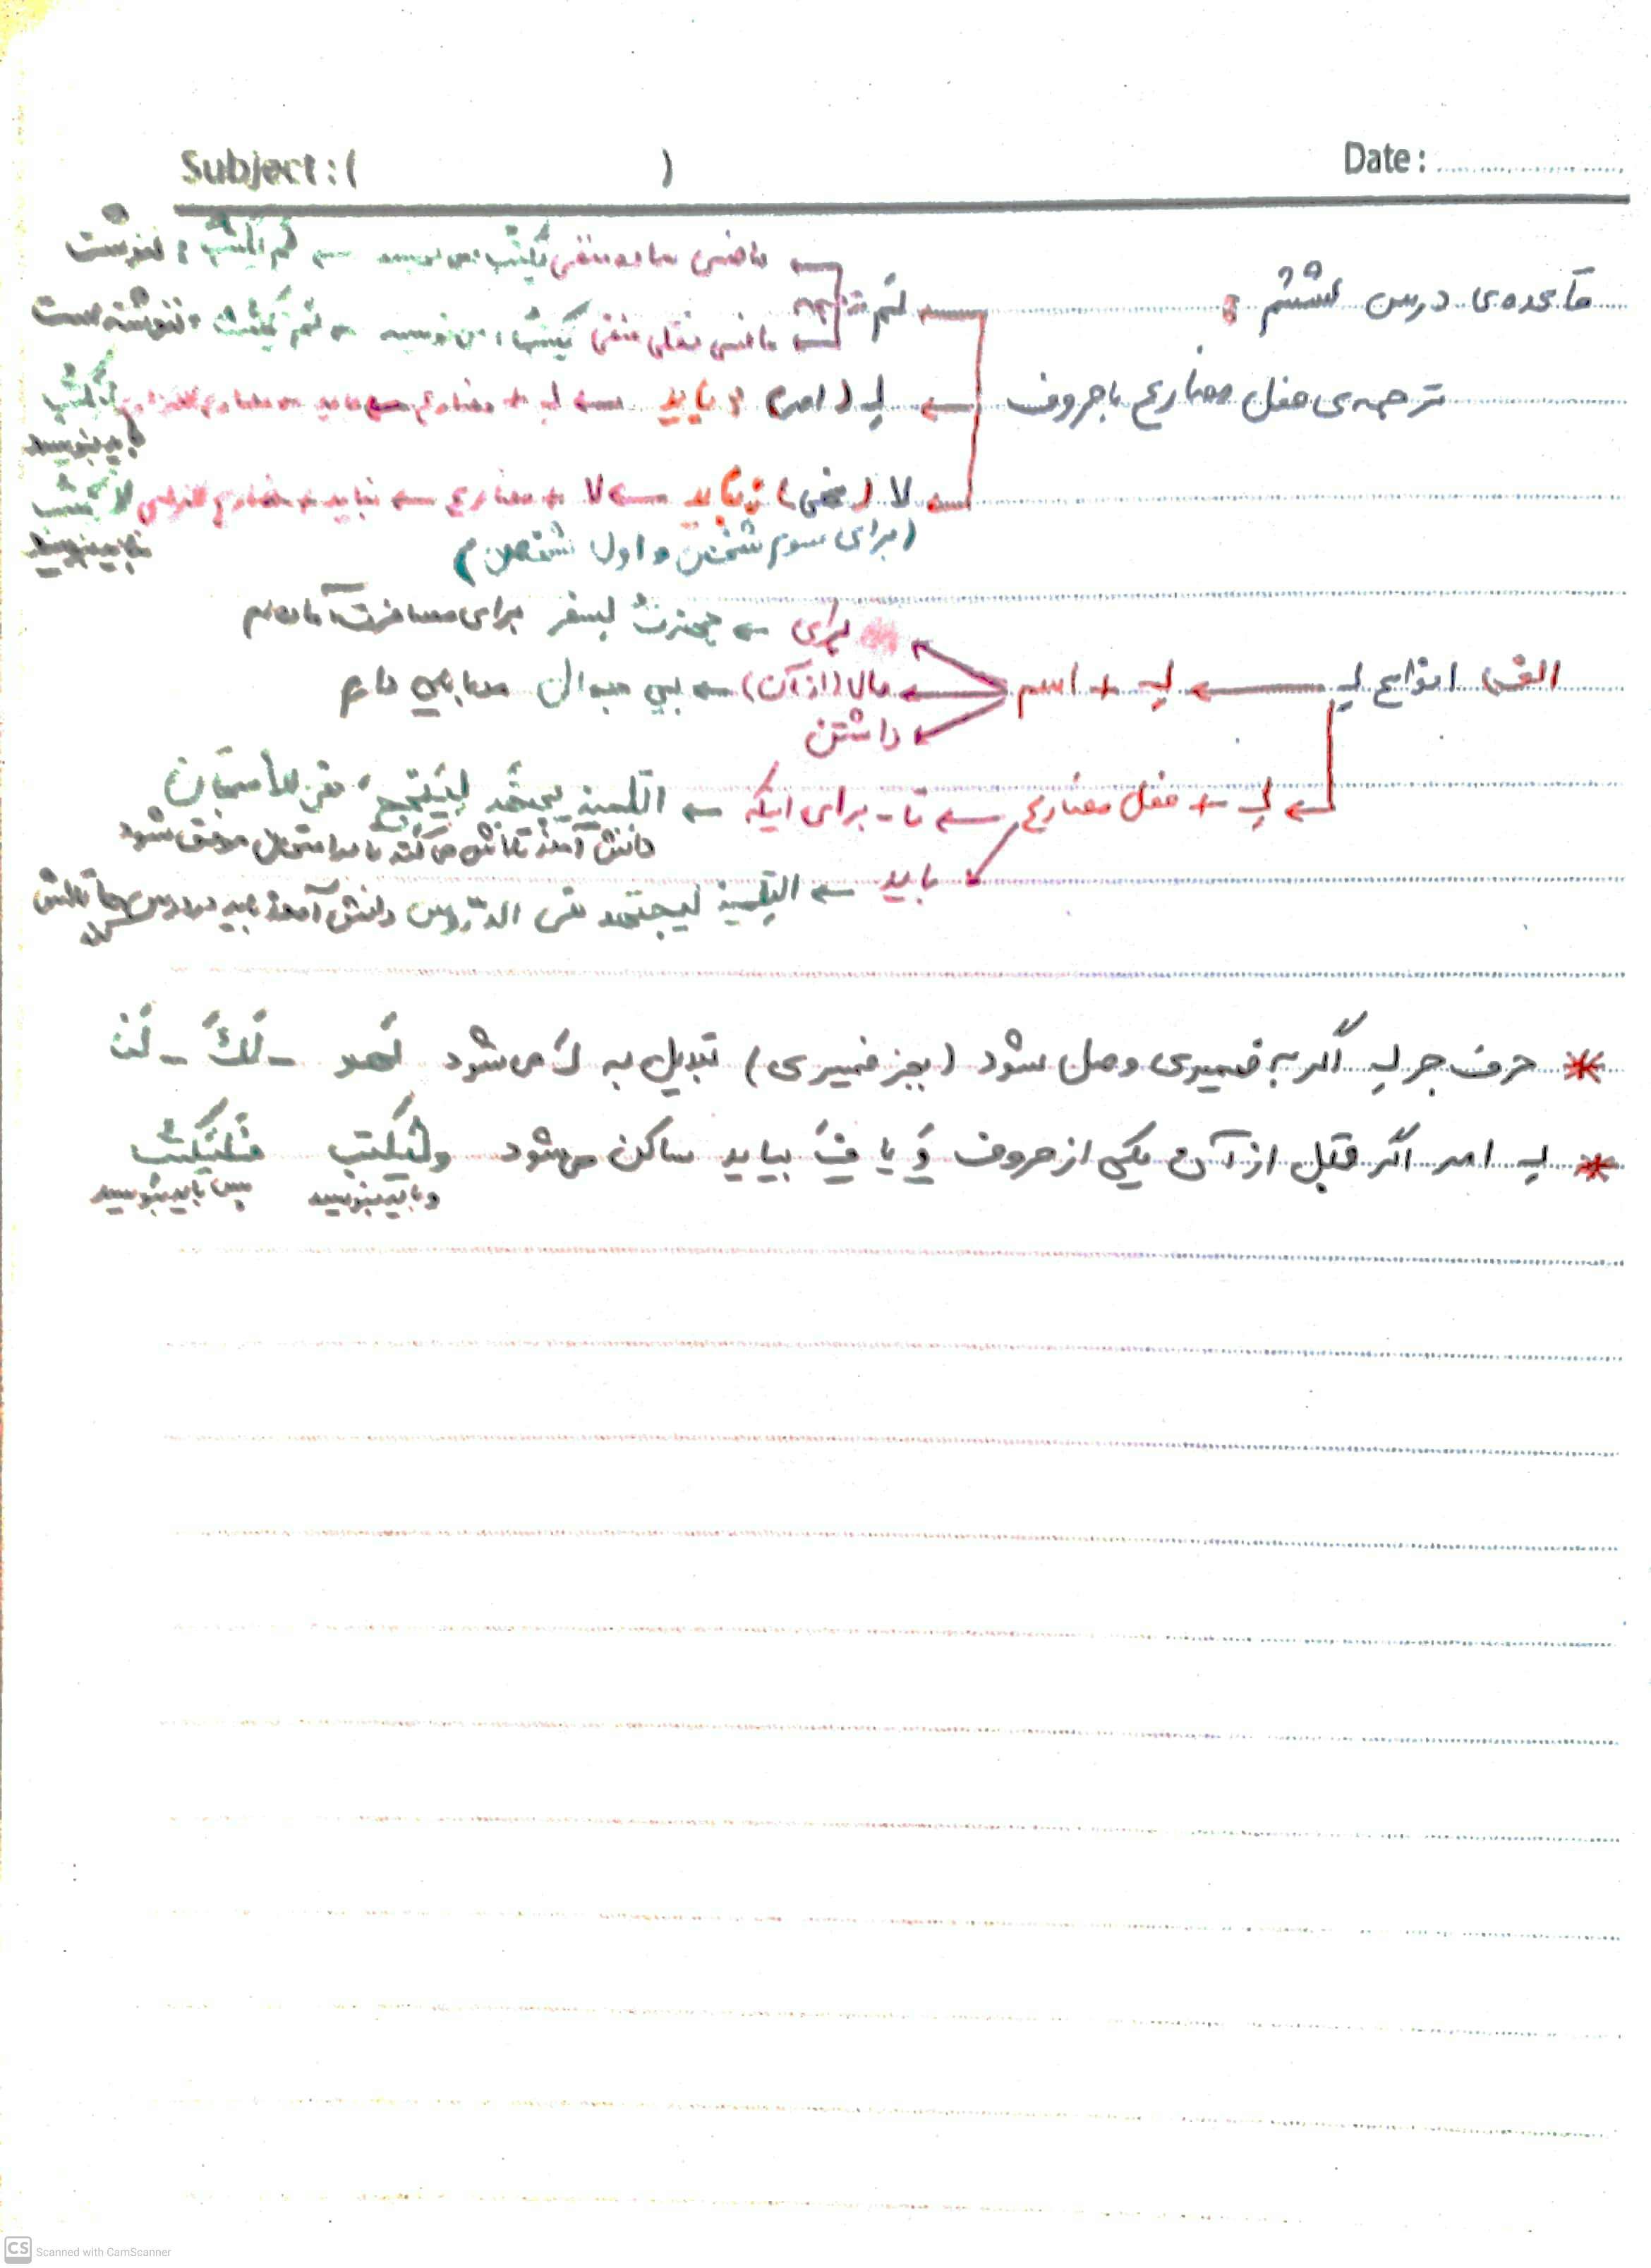 Subject: ( ) Date:
قاعده‌ی درس ششم:
لَم ← ماضی ساده منفی یَکتُبُ: می نویسد ← لَم یَکتُبْ: ننوشت
ماضی نقلی منفی یَکتُبُ: می نویسد ← لَم یَکتُبْ: ننوشته است
ترجمه‌ی فعل مضارع با حروف ← لِـ (امر): باید ← لِـ + مضارع ← باید + مضارع التزامی لِیَکتُبْ
باید بنویسد
لا (نهی): نباید ← لا + مضارع ← نباید + مضارع التزامی لا یَکتُبْ
نباید بنویسد
(برای سوم شخص و اول شخص)
برای ← لسفر برای مسافرت آماده‌ام
الف) انواع لِـ ← لِـ + اسم مال (از آن) ← دارم
داشتن
لِـ + فعل مضارع ← تا - برای اینکه ← التلمیذ یجتهد لِیَنجَحَ فی الامتحان
دانش آموز تلاش می کند تا در امتحان موفق شود
باید ← التلمیذ لیجتهد فی الدّروس دانش آموز باید در درس ها تلاش
کند
* حرف جر لِـ اگر به ضمیری وصل شود (بجز ضمیر ی) تبدیل به لَـ می شود لَهُ - لَكَ - لَنا
* لِـ امر اگر قبل از آن یکی از حروف وَ یا فَـ بیاید ساکن می‌شود ولْیَکتب فَلْیَکتُبْ
و باید بنویسد پس باید بنویسد
CS Scanned with CamScanner